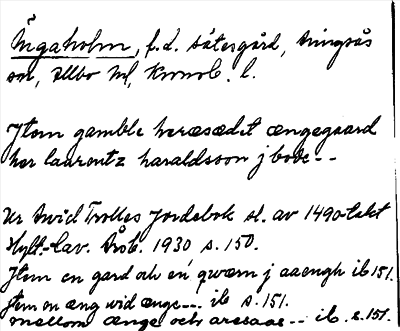 Ängaholm, f.d. sätesgård, Aringsås
sn, Allbo hd, Kronob. l.
Jtem gamble heræsædet ængegaard
her laurentz haraldsson j bode--
Ur Arvid Trolles Jordebok sl. av 1490-talet
Hylt.-Cav. Årsb. 1930 s. 150.
Jtem en gard och en qwærn j aaengh ib 151.
Jtem en æng wid ænge--- ib s. 151.
mellom ænge och aresaas-- ib. s. 151.